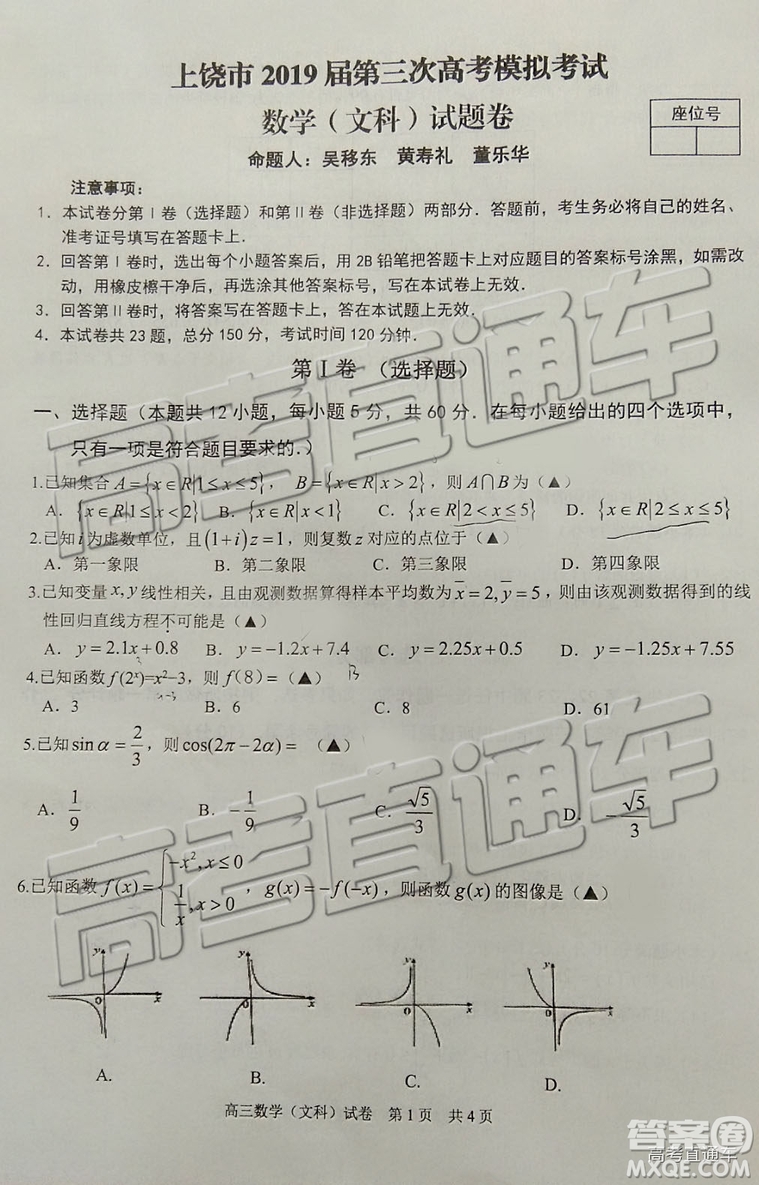 上饶市 2019 届第三次高考模拟考试
数学（文科）试题卷
座位号
命题人：吴移东 黄寿礼 董乐华
注意事项：
1．本试卷分第Ⅰ卷（选择题）和第Ⅱ卷（非选择题）两部分．答题前，考生务必将自己的姓名、
准考证号填写在答题卡上．
2．回答第Ⅰ卷时，选出每个小题答案后，用 2B 铅笔把答题卡上对应题目的答案标号涂黑，如需改
动，用橡皮檫干净后，再选涂其他答案标号，写在本试卷上无效．
3．回答第Ⅱ卷时，将答案写在答题卡上，答在本试题上无效．
4．本试卷共 23 题，总分 150 分，考试时间 120 分钟．
第Ⅰ卷 （选择题）
一、选择题（本题共 12 小题，每小题 5 分，共 60 分．在每小题给出的四个选项中，
只有一项是符合题目要求的．）
1.已知集合 A={x∈R|1≤x≤5}， B={x∈R|x>2}，则 A∩B 为（▲）
A．{x∈R|1≤x<2} B．{x∈R|x<1} C．{x∈R|2<x≤5} D．{x∈R|2≤x≤5}
2.已知 i 为虚数单位，且 (1+i)z=1，则复数 z 对应的点位于（▲）
A．第一象限 B．第二象限 C．第三象限 D．第四象限
3.已知变量 x, y 线性相关，且由观测数据算得样本平均数为 x̄=2, ȳ=5，则由该观测数据得到的线
性回归直线方程不可能是（▲）
A．y=2.1x+0.8 B．y=-1.2x+7.4 C．y=2.25x+0.5 D．y=-1.25x+7.55
4.已知函数 f(2ˣ)=x²-3，则 f(8)=（▲） B
x-3
A．3 B．6 C．8 D．61
5.已知 sinα=2/3，则 cos(2π-2α)= （▲）
A．1/9 B．-1/9 C．√5/3 D．-√5/3
6.已知函数 f(x)={-x², x≤0; 1/x, x>0，g(x)=-f(-x)，则函数 g(x) 的图像是（▲）
y y y y
O x O x O x O x
A. B. C. D.
高三数学（文科）试卷 第 1 页 共 4 页
高考直通车
高考直通车
答案圈
高考直通车
MXQE.COM